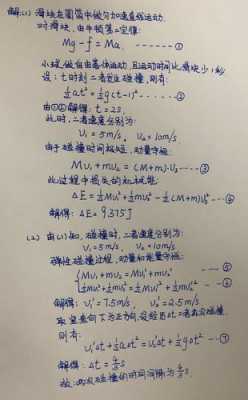 解:(1) 滑块在圆筒中做匀加速直线运动.
对滑块,由牛顿第二定律:
Mg-f=Ma. ------①
小球做自由落体运动,且运动时间比滑块少1秒
设:t时刻二者发生碰撞,则有:
½at²=½g(t-1)² ------②
由①②解得:t=2s.
此时,二者速度分别为:
U₁=5m/s, U₂=10m/s
由于碰撞时间极短,动量守恒:
MU₁+mU₂=(M+m)·U₃ ---③
此过程中损失的机械能:
ΔE=½MU₁²+½mU₂²-½(M+m)U₃² --④
解得:ΔE=9.375J
(2) 由(1)知,碰撞时,二者速度分别为:
U₁=5m/s, U₂=10m/s.
弹性碰撞过程,动量和能量守恒:
MU₁+mU₂=MU₁'+mU₂' ---⑤
½MU₁²+½mU₂²=½MU₁'²+½mU₂'² --⑥
解得:U₁'=7.5m/s, U₂'=2.5m/s
取竖直向下为正方向,设经历Δt二者再次碰撞.
则有:
U₁'Δt+½aΔt²=U₂'Δt+½gΔt² --⑦
解得:Δt=4/3 s
故:两次碰撞的时间间隔为4/3 s.